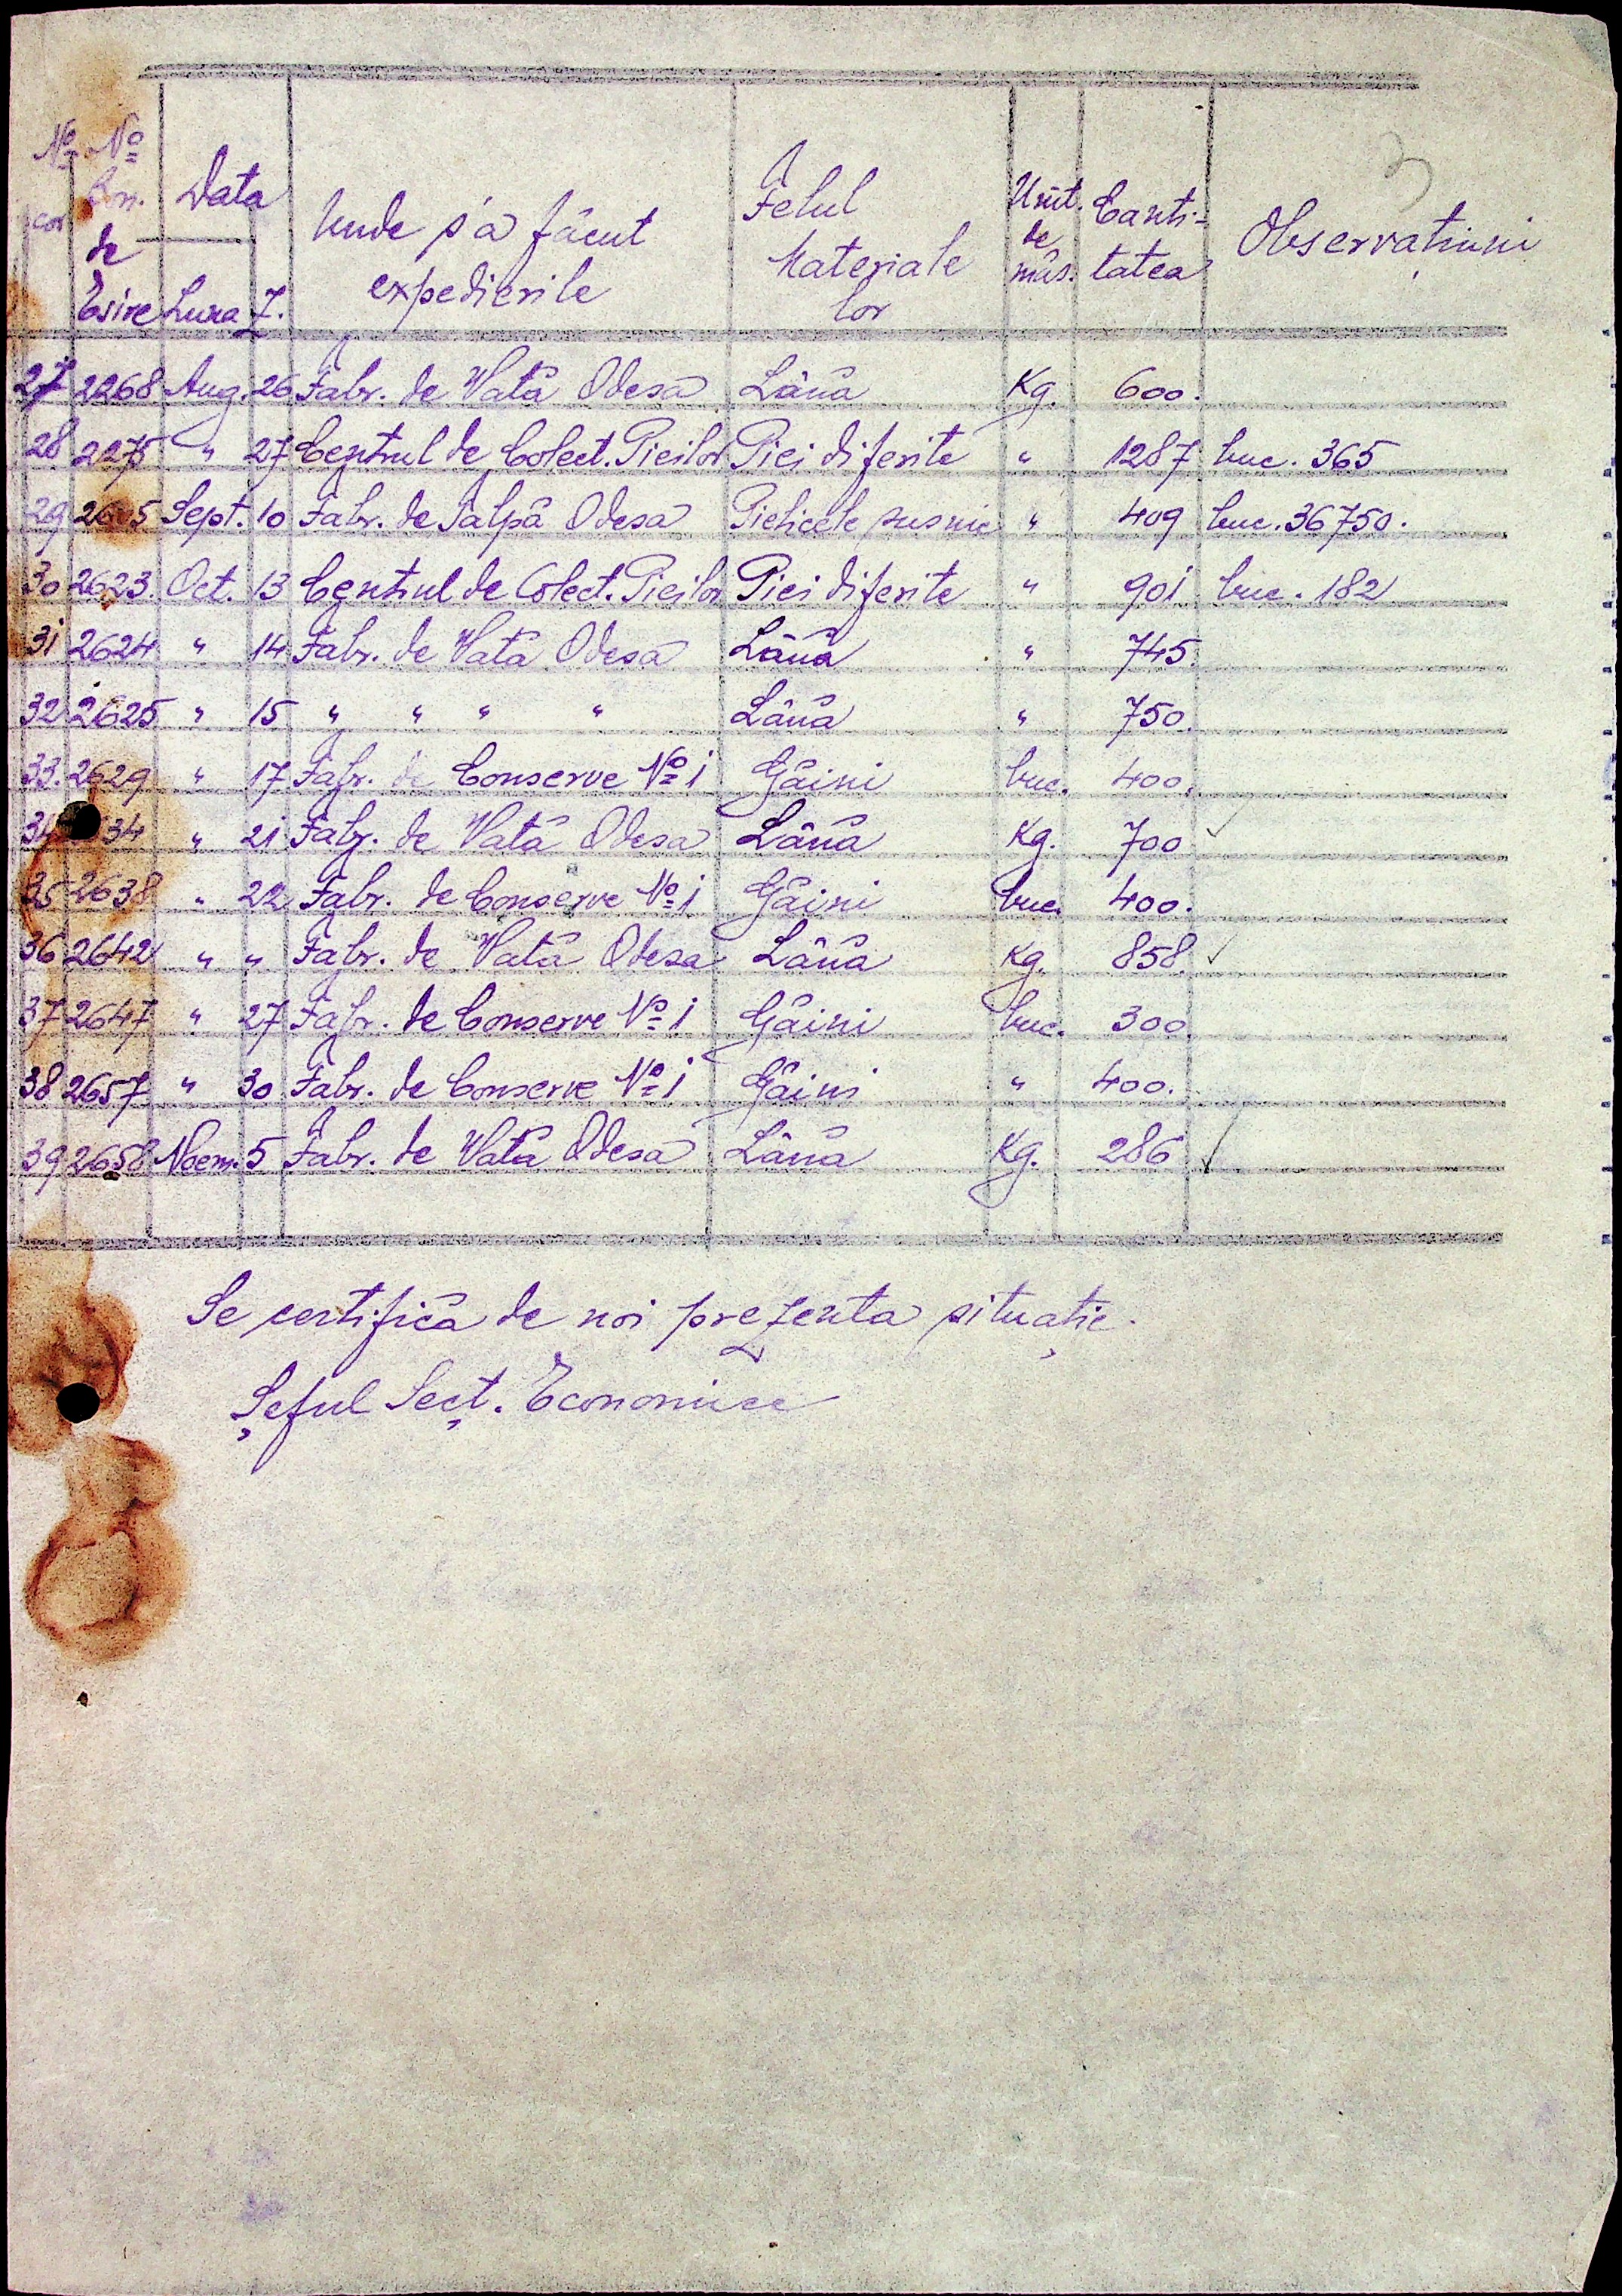 3
No. cor | No. Bon. de Esire | Data Luna Z. | Unde s'a făcut expedierile | Felul Materialelor | Unit. de măs. | Canti-tatea | Observațiuni
27 2268 Aug. 26 Fabr. de Vată Odesa Lână Kg. 600.
28 2275 " 27 Centrul de Colect. Pieilor Piei diferite " 1287 buc. 365
29 2605 Sept. 10 Fabr. de Talpă Odesa Pielicele susnic " 409 buc. 36750.
30 2623 Oct. 13 Centrul de Colect. Pieilor Piei diferite " 901 buc. 182
31 2624 " 14 Fabr. de Vată Odesa Lână " 745.
32 2625 " 15 " " " " Lână " 750.
33. 2629 " 17 Fabr. de Conserve No 1 Găini buc. 400.
34 34 " 21 Fabr. de Vată Odesa Lână Kg. 700
35 2638 " 22 Fabr. de Conserve No 1 Găini buc. 400.
36 2642 " " Fabr. de Vată Odesa Lână Kg. 858
37 2647 " 27 Fabr. de Conserve No 1 Găini buc. 300
38 2657 " 30 Fabr. de Conserve No 1 Găini " 400.
39 2658 Noem. 5 Fabr. de Vată Odesa Lână Kg. 286
Se certifică de noi prezenta situație.
Șeful Secț. Economice